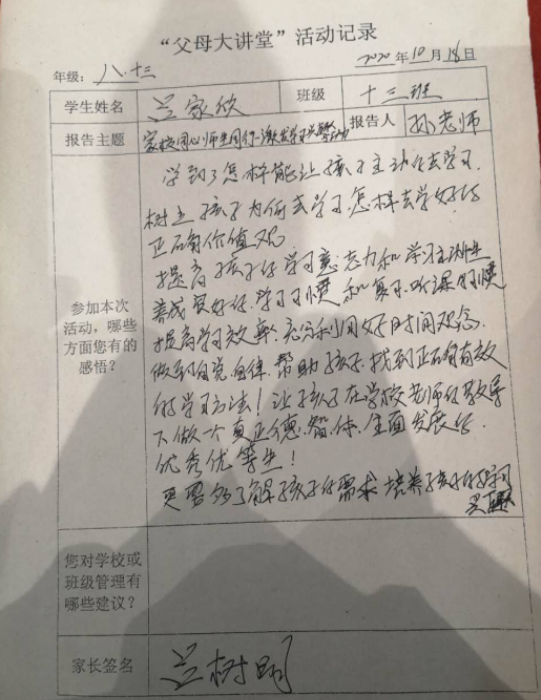 “父母大讲堂”活动记录
年级：八.十三 2020年10月18日
学生姓名 吕家欣 班级 十三班
报告主题 家校同心师生同行.激发学习兴趣 报告人 孙老师
学到了怎样能让孩子主动去学习.
树立孩子为何去学习.怎样去学好的
正确价值观
提高孩子的学习意志力和学习主动性
养成良好的.学习习惯和复习.听课习惯
提高学习效率.充分利用好时间观念.
做到自觉.自律.帮助孩子.找到正确有效
的学习方法！让孩子在学校老师的教导
下做一个真正德.智.体.全面发展的.
优秀优等生！
更要多了解孩子的需求培养孩子的学习
兴趣
参加本次
活动，哪些
方面您有的
感悟？
您对学校或
班级管理有
哪些建议？
家长签名 吕树明